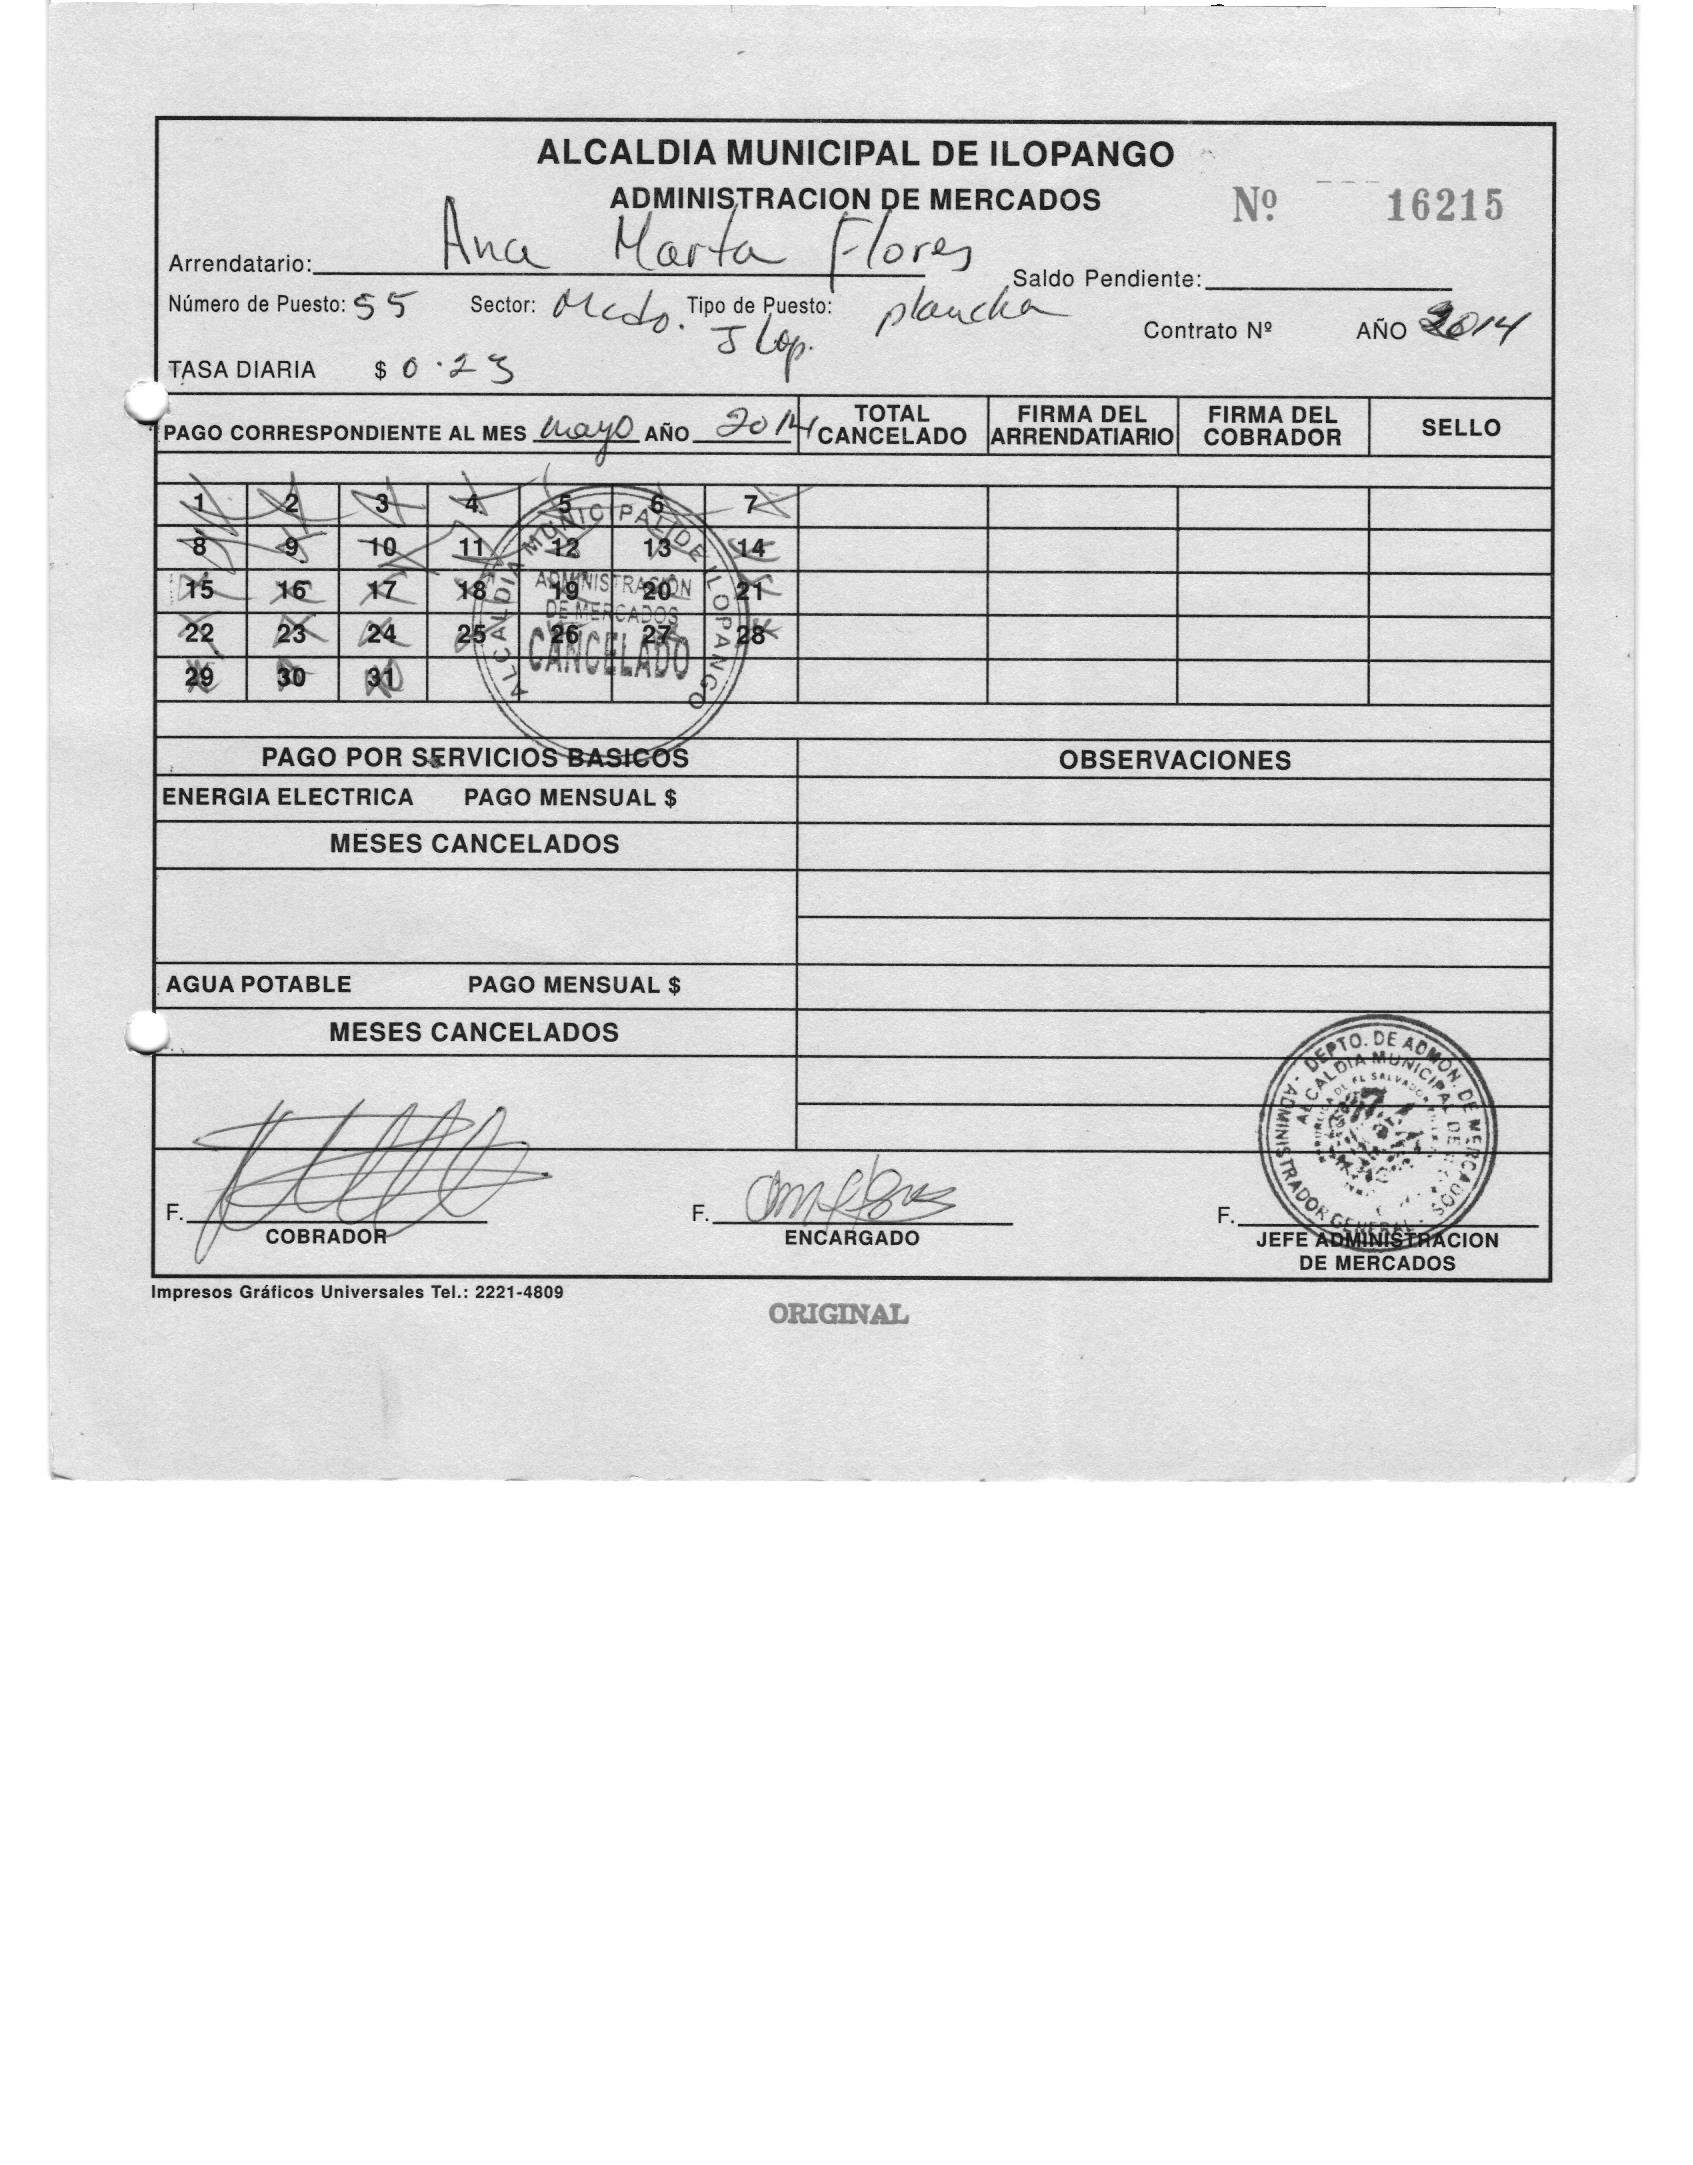 ALCALDIA MUNICIPAL DE ILOPANGO
ADMINISTRACION DE MERCADOS
Nº 16215
Arrendatario: Ana Marta Flores
Saldo Pendiente:
Número de Puesto: 55 Sector: Mcdo. Ilop. Tipo de Puesto: plancha
Contrato Nº AÑO 2014
TASA DIARIA $ 0.23
PAGO CORRESPONDIENTE AL MES mayo AÑO 2014
TOTAL CANCELADO
FIRMA DEL ARRENDATIARIO
FIRMA DEL COBRADOR
SELLO
1 2 3 4 5 6 7
8 9 10 11 12 13 14
15 16 17 18 19 20 21
22 23 24 25 26 27 28
29 30 31
ALCALDIA MUNICIPAL DE ILOPANGO
ADMINISTRACION
DE MERCADOS
CANCELADO
PAGO POR SERVICIOS BASICOS
OBSERVACIONES
ENERGIA ELECTRICA PAGO MENSUAL $
MESES CANCELADOS
AGUA POTABLE PAGO MENSUAL $
MESES CANCELADOS
DEPTO. DE ADMON. DE MERCADOS
ALCALDIA MUNICIPAL DE
ADMINISTRADOR GENERAL
F.
COBRADOR
F.
ENCARGADO
F.
JEFE ADMINISTRACION
DE MERCADOS
Impresos Gráficos Universales Tel.: 2221-4809
ORIGINAL